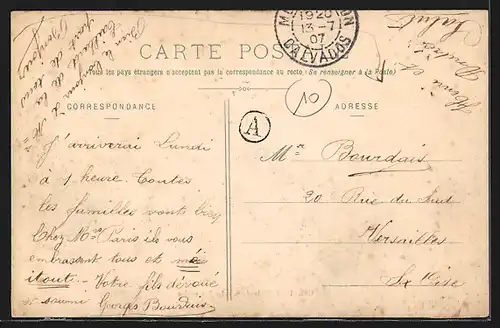 CARTE POSTALE
Tous les pays étrangers n'acceptent pas la correspondance au recto (Se renseigner à la Poste)
CORRESPONDANCE
ADRESSE
19 20
13 -7
07
CALVADOS
A
J'arriverai Lundi
à 1 heure. Toutes
les familles vont bien
Chez Mme Paris ils vous
embrassent tous et moi
itout. Votre fils dévoué
et soumis Georges Bourdais
Mr Bourdais
20 Rue du Sud
Versailles
S. et Oise
Bien le bonjour
de la
part de tous
Salut